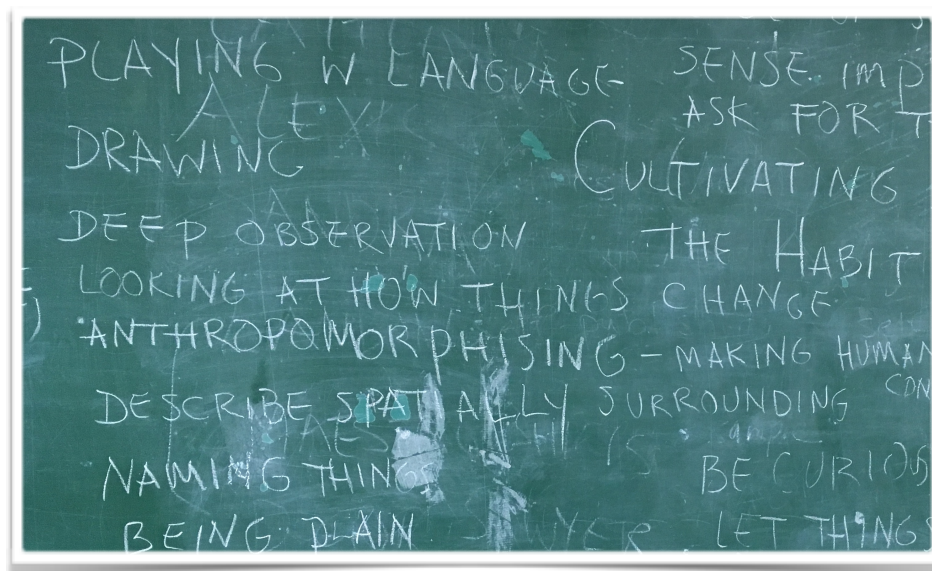 PLAYING W LANGUAGE
ALEX
DRAWING
DEEP OBSERVATION
LOOKING AT HOW THINGS CHANGE
ANTHROPOMORPHISING - MAKING HUMAN
DESCRIBE SPATIALLY SURROUNDING
NAMING THINGS
BEING PLAIN
SENSE IMP
ASK FOR T
CULTIVATING
THE HABIT
CON
BE CURIOUS
LET THINGS